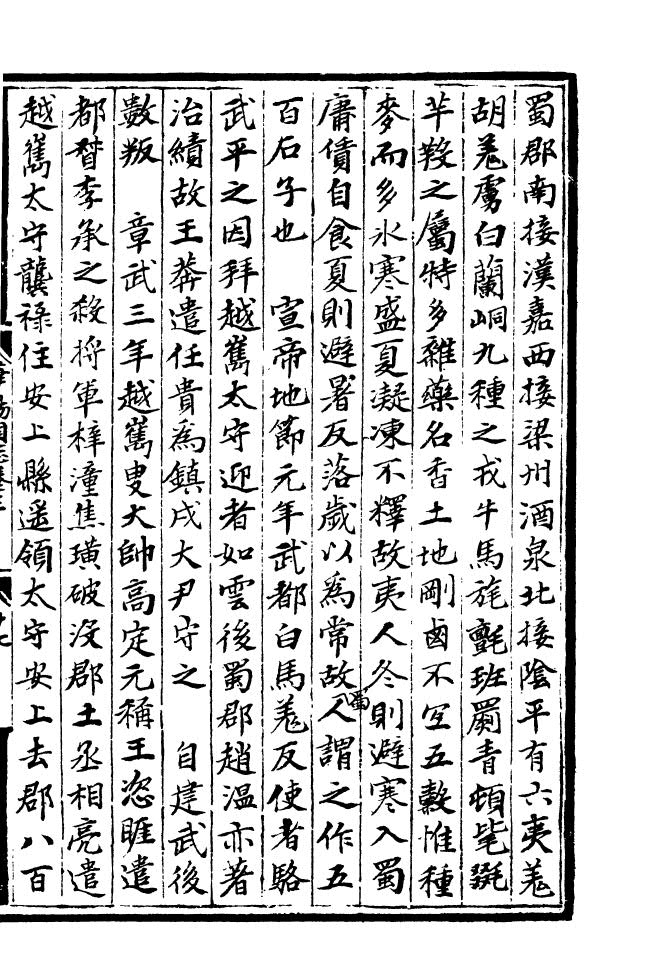 蜀郡南接漢嘉西接梁州酒泉北接陰平有六夷羗
胡羗虜白蘭峒九種之戎牛馬旄氈班罽青頓毞毲
羊羖之屬特多雜藥名香土地剛鹵不宜五穀惟種
麥而多氷寒盛夏凝凍不釋故夷人冬則避寒入蜀
庸賃自食夏則避暑反落歲以爲常故蜀人謂之作五
百石子也　宣帝地節元年武都白馬羗反使者駱
武平之因拜越嶲太守迎者如雲後蜀郡趙温亦著
治績故王莽遣任貴爲鎮戍大尹守之　自建武後
數叛　章武三年越嶲叟大帥高定元稱王恣睢遣
都督李承之殺將軍梓潼焦璜破没郡土丞相亮遣
越嶲太守龔禄住安上縣遥領太守安上去郡八百